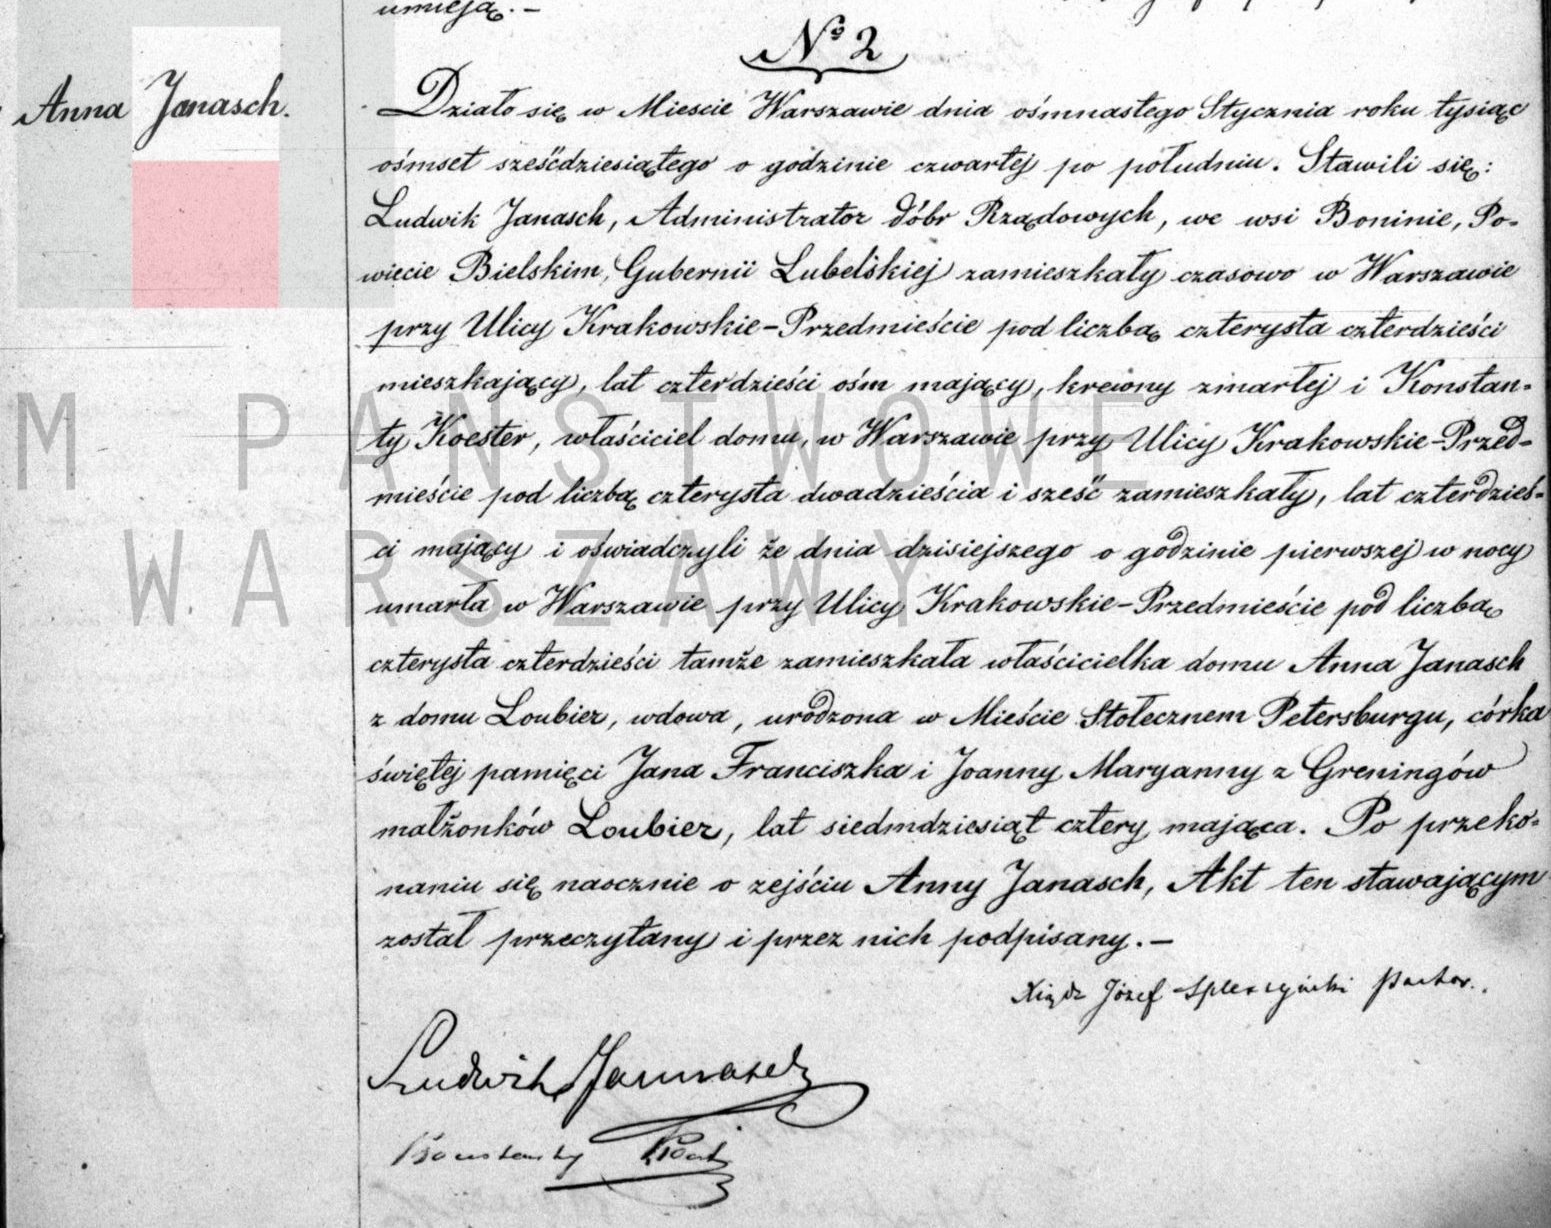 umieją.—
Nº 2
Anna Janasch.
Działo się w Miescie Warszawie dnia ośmnastego Stycznia roku tysiąc
ośmset sześćdziesiątego o godzinie czwartej po południu. Stawili się:
Ludwik Janasch, Administrator dóbr Rządowych, we wsi Boninie, Po-
wiecie Bielskim, Gubernii Lubelskiej zamieszkały czasowo w Warszawie
przy Ulicy Krakowskie-Przedmieście pod liczbą czterysta czterdzieści
mieszkający, lat czterdzieści ośm mający, krewny zmarłej i Konstan-
ty Koester, właściciel domu, w Warszawie przy Ulicy Krakowskie-Przed-
mieście pod liczbą czterysta dwadzieścia i sześć zamieszkały, lat czterdzieś-
ci mający i oświadczyli że dnia dzisiejszego o godzinie pierwszej w nocy
umarła w Warszawie przy Ulicy Krakowskie-Przedmieście pod liczbą
czterysta czterdzieści tamże zamieszkała właścicielka domu Anna Janasch
z domu Loubier, wdowa, urodzona w Mieście Stołecznem Petersburgu, córka
świętej pamięci Jana Franciszka i Joanny Maryanny z Greningów
małżonków Loubier, lat siedmdziesiąt cztery mająca. Po przeko-
naniu się naocznie o zejściu Anny Janasch, Akt ten stawającym
został przeczytany i przez nich podpisany.—
Xiądz Józef Spleszyński Pastor.
Ludwik Jannasch
Konstanty
M PAŃSTWOWE
WARSZAWY